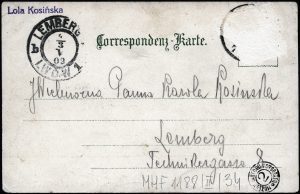 Lola Kosińska
LEMBERG
LWÓW 1
Correspondenz-Karte.
Wielmożna Panna Karola Kosinska
Lemberg
Technikergasse 9
MHF 1188/II/34